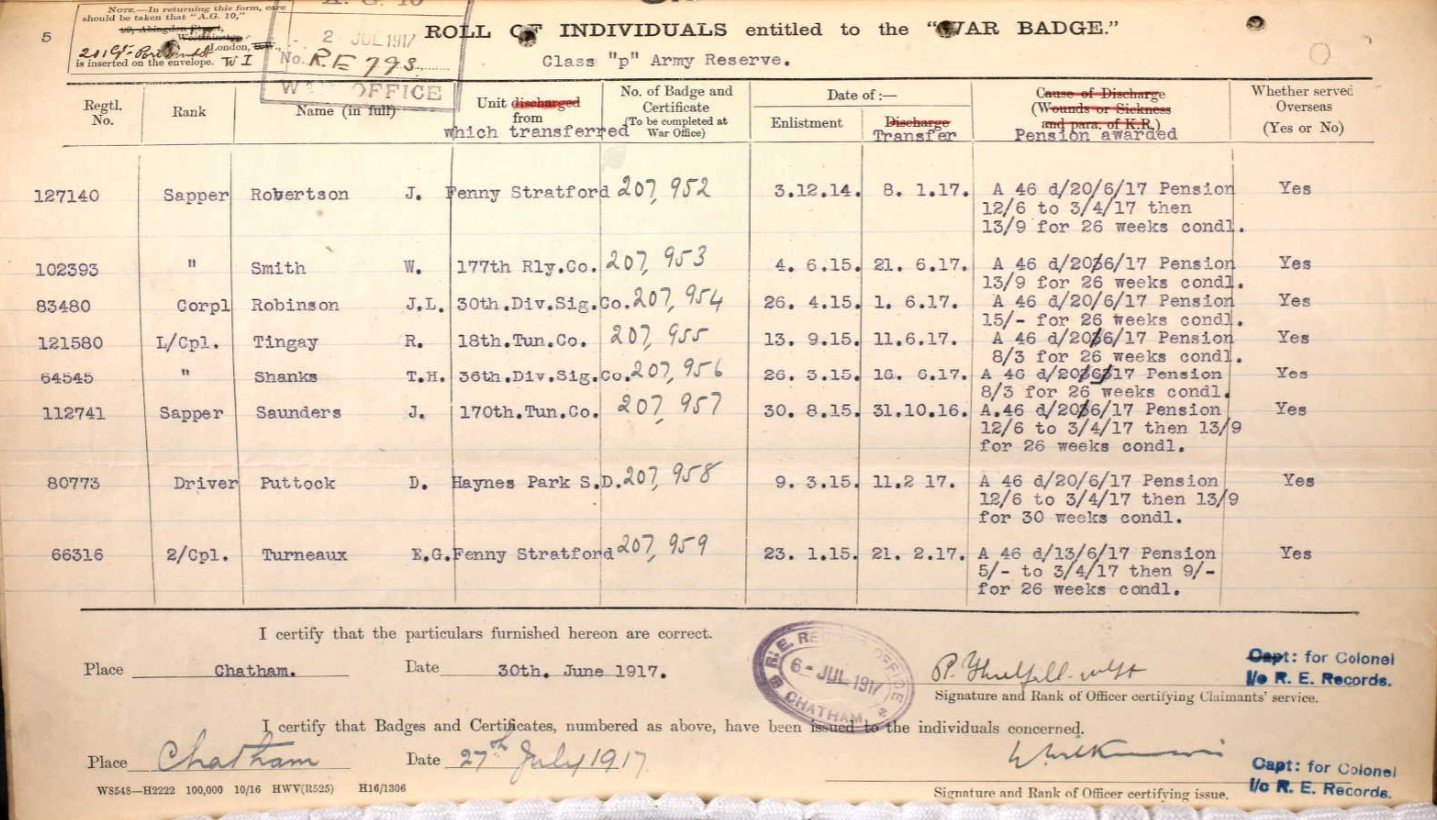 5
NOTE.—In returning this form, care
should be taken that "A.G. 10,"
London,
is inserted on the envelope. W I
A. G. 10
2 JUL 1917
No. R.E 793
WAR OFFICE
ROLL OF INDIVIDUALS entitled to the "WAR BADGE."
Class "p" Army Reserve.
Regtl. No. Rank Name (in full) Unit discharged from which transferred No. of Badge and Certificate (To be completed at War Office) Date of :— Enlistment Discharge Transfer Cause of Discharge (Wounds or Sickness and para. of K.R.) Pension awarded Whether served Overseas (Yes or No)
127140 Sapper Robertson J. Fenny Stratford 207,952 3.12.14. 8. 1.17. A 46 d/20/6/17 Pension Yes
12/6 to 3/4/17 then
13/9 for 26 weeks condl.
102393 " Smith W. 177th Rly.Co. 207,953 4. 6.15. 21. 6.17. A 46 d/20/6/17 Pension Yes
13/9 for 26 weeks condl.
83480 Corpl Robinson J.L. 30th.Div.Sig.Co. 207,954 26. 4.15. 1. 6.17. A 46 d/20/6/17 Pension Yes
15/- for 26 weeks condl.
121580 L/Cpl. Tingay R. 18th.Tun.Co. 207,955 13. 9.15. 11.6.17. A 46 d/20/6/17 Pension Yes
8/3 for 26 weeks condl.
64545 " Shanks T.H. 36th.Div.Sig.Co. 207,956 26. 3.15. 16. 6.17. A 46 d/20/6/17 Pension Yes
8/3 for 26 weeks condl.
112741 Sapper Saunders J. 170th.Tun.Co. 207,957 30. 8.15. 31.10.16. A.46 d/20/6/17 Pension Yes
12/6 to 3/4/17 then 13/9
for 26 weeks condl.
80773 Driver Puttock D. Haynes Park S.D. 207,958 9. 3.15. 11.2 17. A 46 d/20/6/17 Pension Yes
12/6 to 3/4/17 then 13/9
for 30 weeks condl.
66316 2/Cpl. Turneaux E.G. Fenny Stratford 207,959 23. 1.15. 21. 2.17. A 46 d/13/6/17 Pension Yes
5/- to 3/4/17 then 9/-
for 26 weeks condl.
I certify that the particulars furnished hereon are correct.
Place Chatham. Date 30th. June 1917.
R.E. RECORD OFFICE
6- JUL 1917
CHATHAM.
Capt: for Colonel
I/c R. E. Records.
Signature and Rank of Officer certifying Claimants' service.
I certify that Badges and Certificates, numbered as above, have been issued to the individuals concerned.
Place Chatham Date 27th July 1917.
Capt: for Colonel
I/c R. E. Records.
Signature and Rank of Officer certifying issue.
W8548—H2222 100,000 10/16 HWV(R525) H16/1306